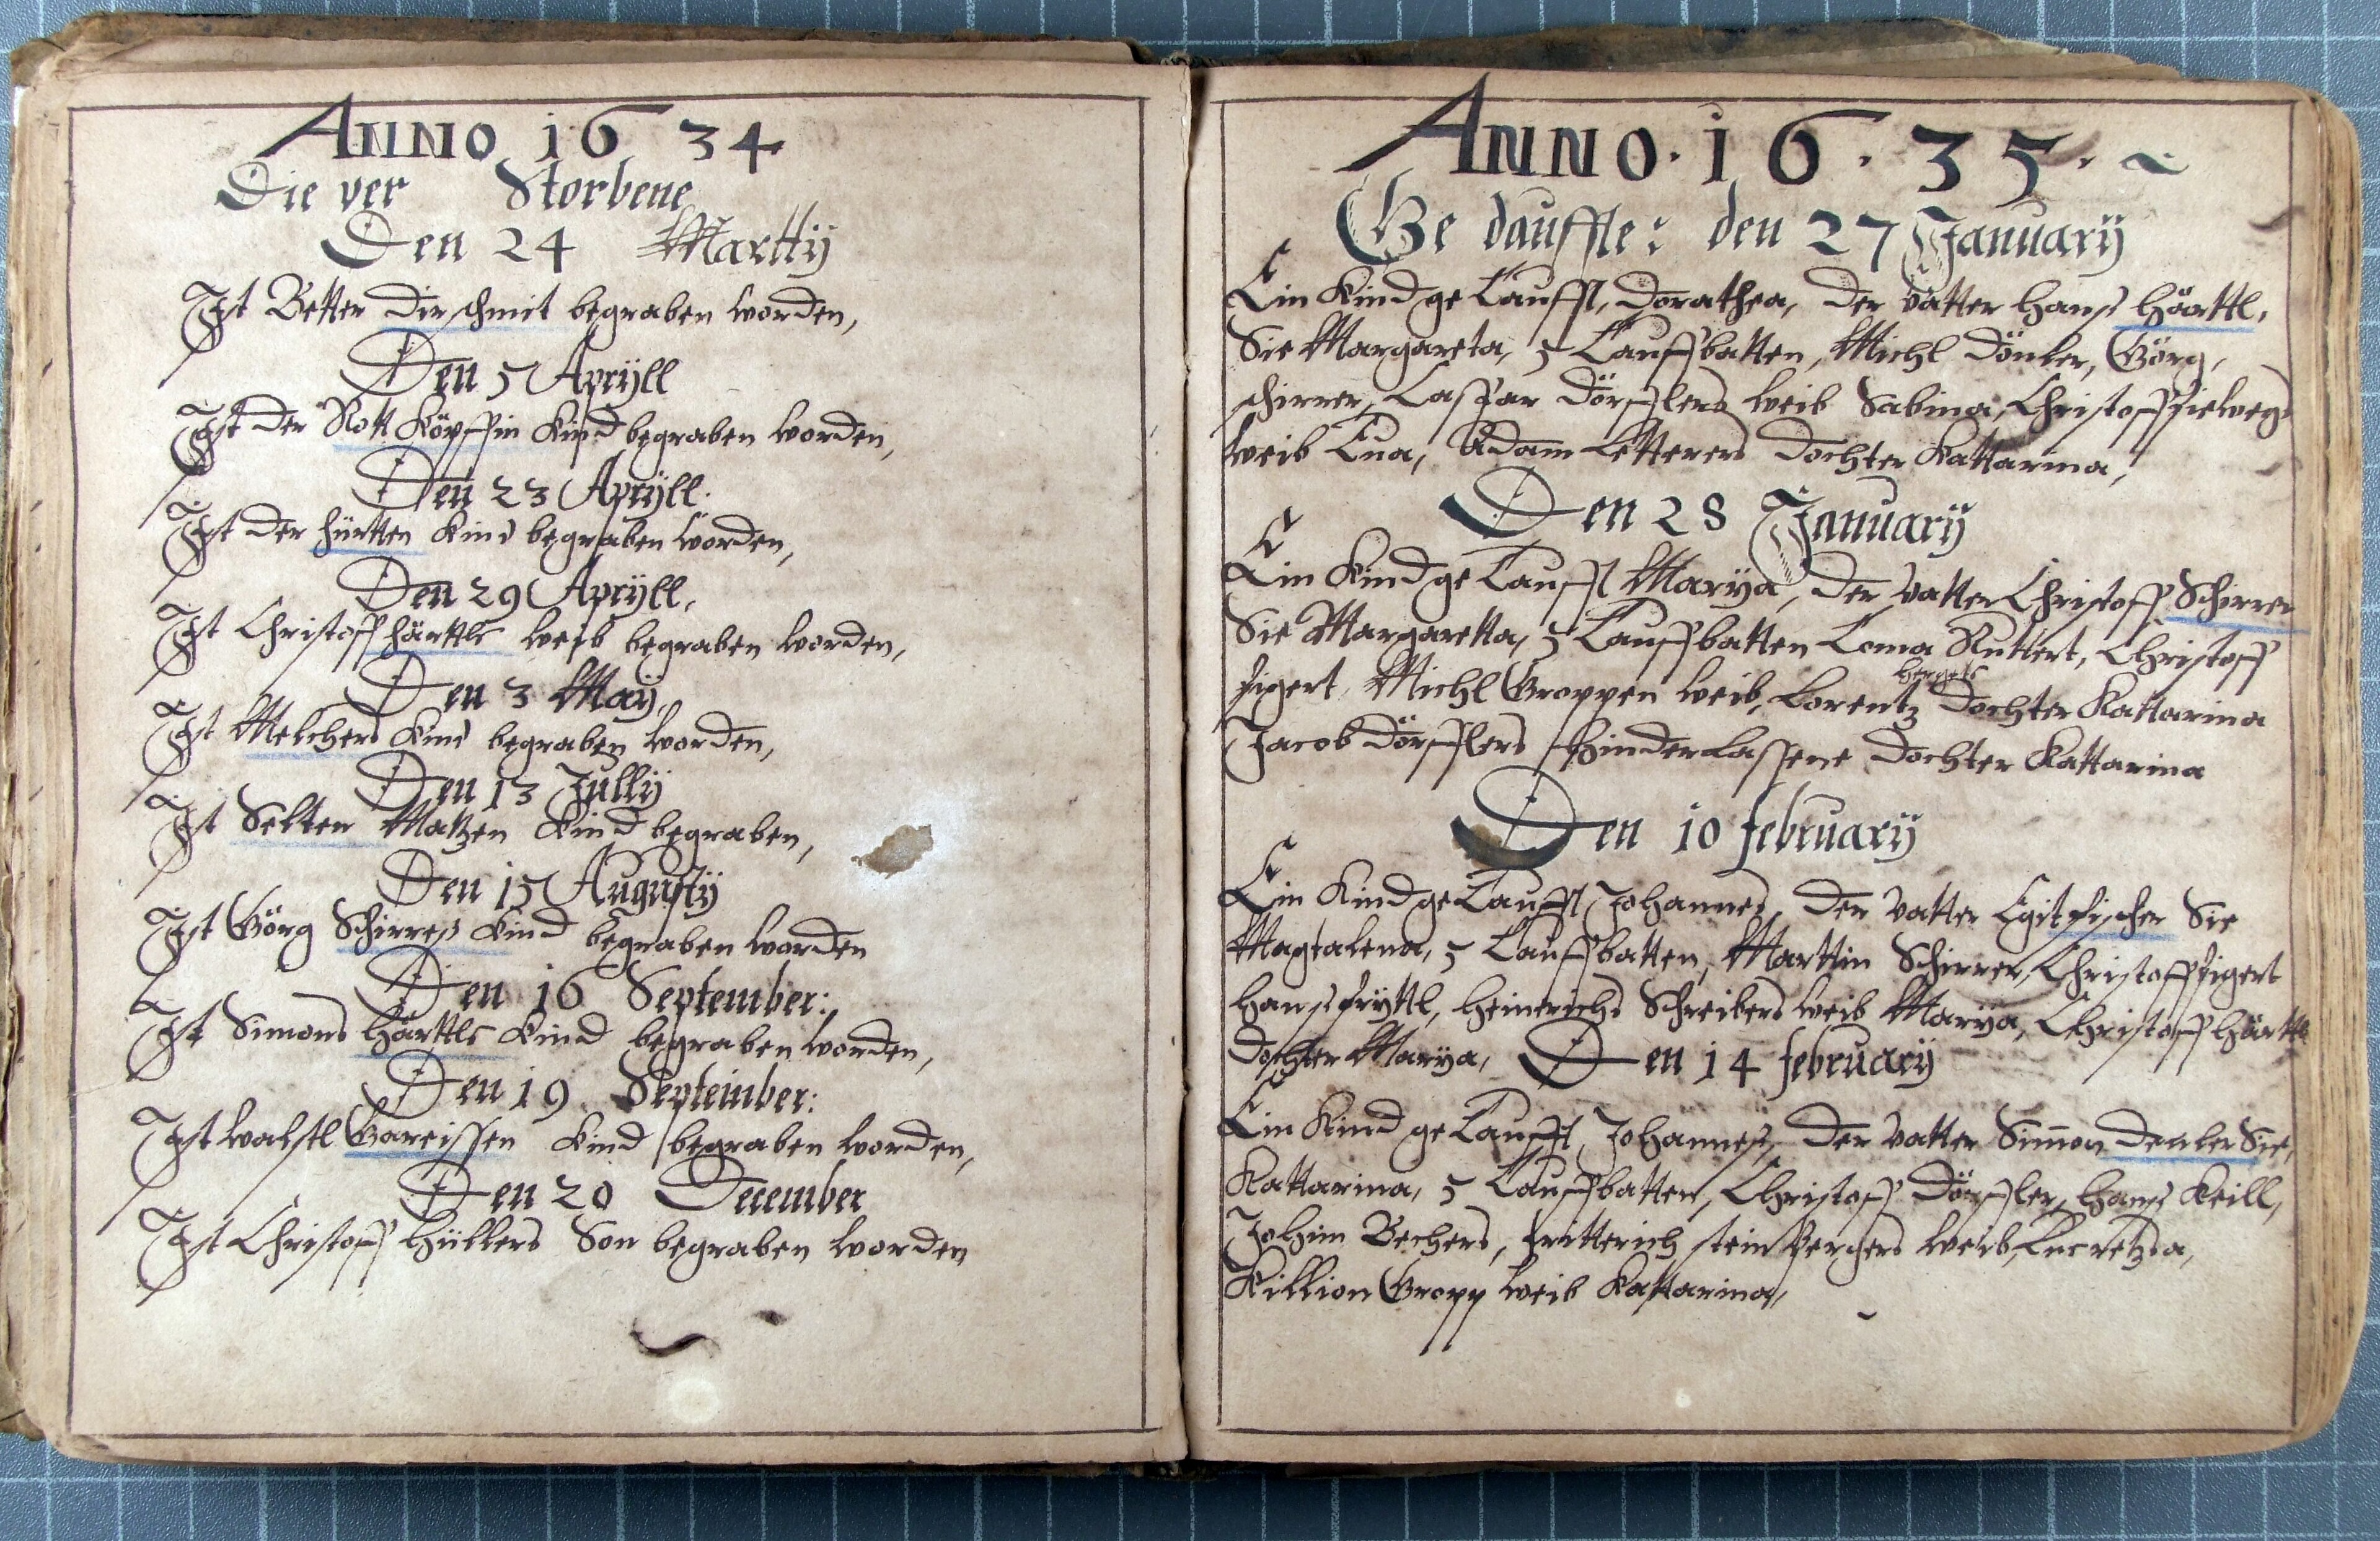 Anno 1634
Die ver Storbene
Den 24 Marttÿ
Ist Better Dirschmit begraben worden,
Den 5 Apryll
Ist der Rott Köpffin Kind begraben worden,
Den 23 Apryll.
Ist der hürtten Kind begraben worden,
Den 29 Apryll,
Ist Christoff härttls weib begraben worden,
Den 3 Maÿ,
Ist Melchers Kind begraben worden,
Den 13 Jullÿ
Ist Selten Matzen Kind begraben,
Den 15 Augustÿ
Ist Görg Schirres Kind begraben worden
Den 16 September:
Ist Simons Härttls Kind begraben worden,
Den 19 September:
Ist Gareissen Kind begraben worden,
Den 20 December
Ist Christoff Hüllers Son begraben worden
Anno. 16. 35.
Ge dauffte: den 27 Januarÿ
Ein Kind getaufft, Dorathea, der vatter Hans Härttl,
Sie Margareta, 5 Tauffbatten, Michl Dönler, Görg,
schirrer, Caspar Dörfflers weib Sabina, Christoff
weib Eua, Adam Letterers Dochter Kattarina,
Den 28 Januarÿ
Ein Kind getaufft Marÿa, der vatter Christoff Schirrer
Sie Margaretta, 5 Tauffbatten Toma Ruttert, Christoff
figert, Michl Groppen weib, Lorentz Hergets Dochter Kattarina
Jacob Dörfflers Hinderlassene Dochter Kattarina
Den 10 februarÿ
Ein Kind getaufft Johannes, der vatter Egit fischer Sie
Magtalena, 5 Tauffbatten, Marttin Schirrer, Christoff figert
Hans fryttl, Heinrichs Schreibers weib Marÿa, Christoff Härttls
Dochter Marÿa, Den 14 februarÿ
Ein Kind getaufft, Johannes, der vatter Simon Denler Sie,
Kattarina, 5 Tauffbatten, Christoff Dörffler, Hans Keill,
Johim Bechers, fritterich steinbergers weib Lucretzia,
Killion Gropp weib Kattarina,